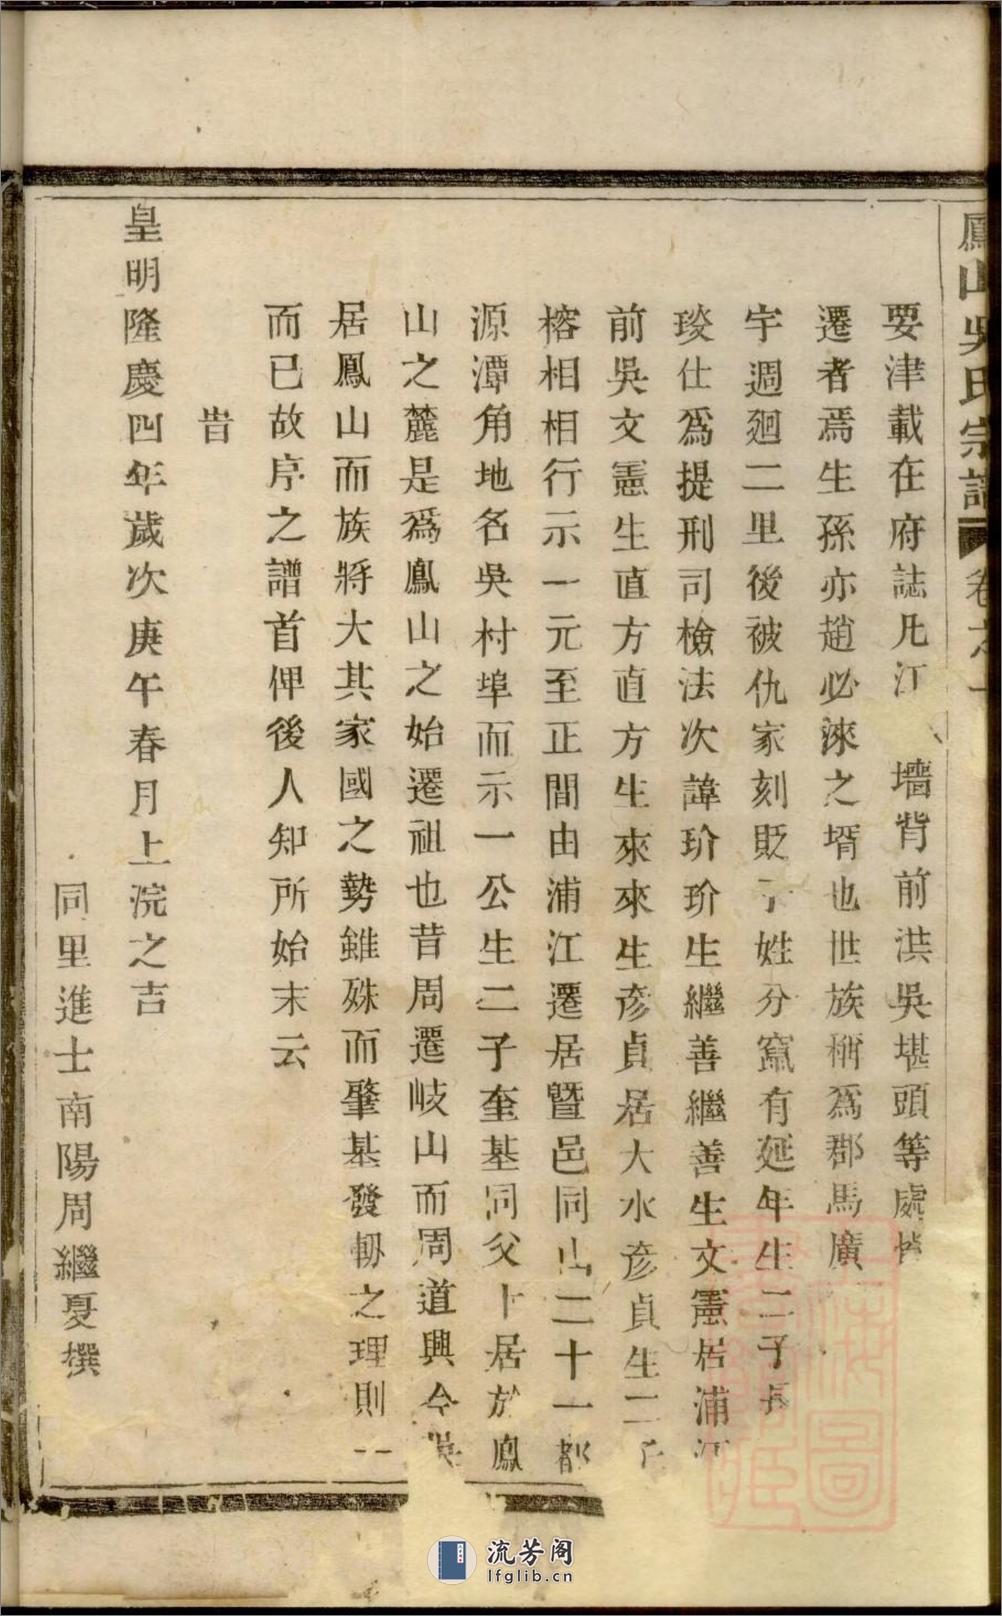 鳳山吳氏宗譜 卷之一
要津載在府誌凡江 墻背前洪吳堪頭等處
遷者焉生孫亦趙必涑之壻也世族稱爲郡馬廣
宇週廻二里後被仇家刻貶 姓分竄有延年生二子長
琰仕爲提刑司檢法次諱玠玠生繼善繼善生文憲居浦江
前吳文憲生直方直方生來來生彥貞居大水彥貞生二子
榕相相行示一元至正間由浦江遷居暨邑同山二十一都
源潭角地名吳村埠而示一公生二子奎基同父卜居於鳳
山之麓是爲鳳山之始遷祖也昔周遷岐山而周道興今吳
居鳳山而族將大其家國之勢雖殊而肇基發軔之理則一
而已故序之譜首俾後人知所始末云
旹
皇明隆慶四年歲次庚午春月上浣之吉
同里進士南陽周繼夏撰
流芳阁
lfglib.cn